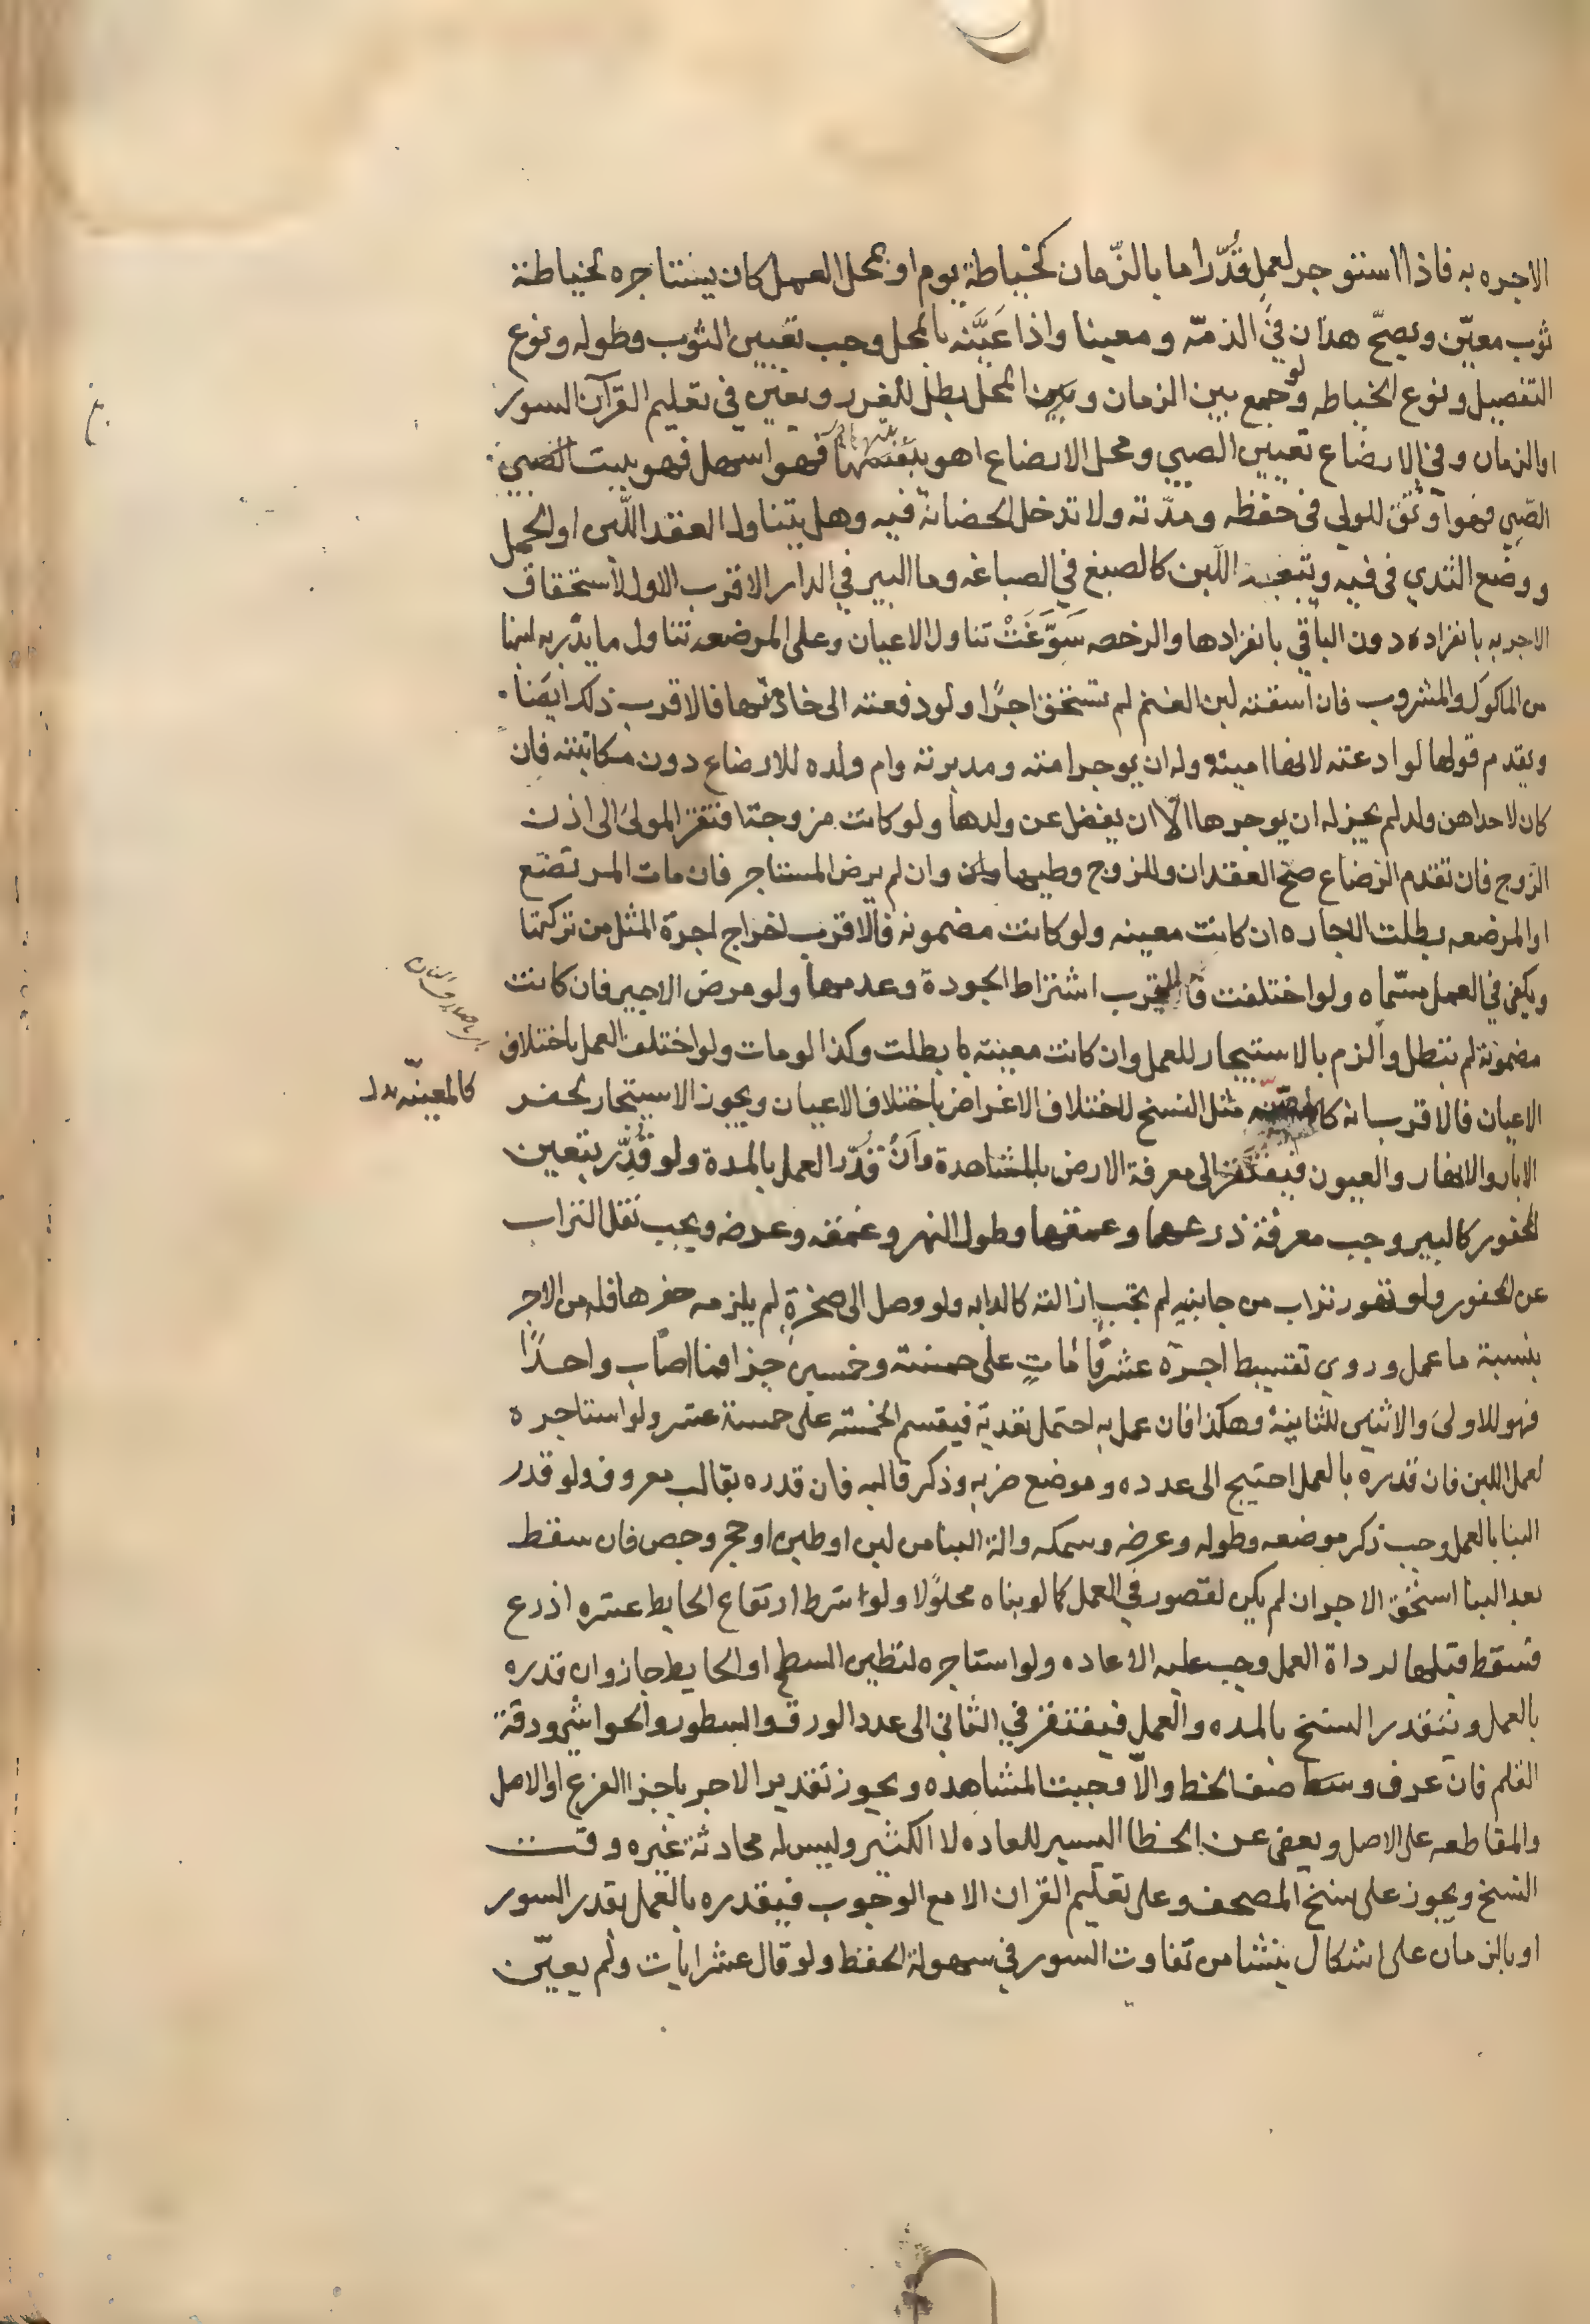 الاجره به فاذا استوجر لعمل قُدّر اما بالزّمان كخياطة يوم او بمحل العمل كان يستاجره لخياطة
ثوب معيّن ويصحّ هذان في الذمّه ومعينا واذا عَيَّنه بالمحل وجب تعيين الثوب وطوله ونوع
التفصيل ونوع الخياطه ولو جمع بين الزمان وبين المحل بطل للغرر ويعين في تعليم القرآن السور
او الزمان وفي الارضاع تعيين الصبي ومحل الارضاع اهو فهو اسهل فهو ببيت الصبي
الصّبي فهو اوثق للولي في حفظه ومدّته ولا تدخل الحضانة فيه وهل يتناول العقد اللّبن او الحمل
ووضع الثدي في فيه ويتبعه اللبن كالصبغ في الصباغه وما البير في الدار الاقرب الاول لاستحقاق
الاجر به بانفراده دون الباقي بانفرادها والرخصه سَوَّغَتْ تناول الاعيان وعلى المرضعه تناول ما يدّر به لبنها
من الماكول والمشروب فان اسقته لبن الغنم لم تستحق اجرًا ولو دفعته الى خادمتها فالاقرب ذلك ايضا
ويقدم قولها لو ادعته لانها امينة وله ان يوجر امته ومدبرته وام ولده للارضاع دون مكاتبته فان
كان لاحداهن ولد لم يجز له ان يوجرها الّا ان يفضل عن ولدها ولو كانت مزوجتا افتقر المولى الى اذن
الزوج فان تقدم الرضاع صحّ العقدان وللزوج وطيها وان لم يرض المستاجر فان مات المرتضع
او المرضعه بطلت الاجاره ان كانت معينه ولو كانت مضمونه فالاقرب اخراج اجرة المثل من تركتها
ويكفي في العمل مسّماه ولو اختلفت فالاقرب اشتراط الجودة وعدمها ولو مرض الاجير فان كانت
مضمونة لم تبطل والزم بالاستيجار للعمل وان كانت معينته بطلت وكذا لو مات ولو اختلف العمل باختلاف
الاعيان فالاقرب انه مثل النسخ لاختلاف الاغراض باختلاف الاعيان ويجوز الاستيجار لحفر
كالمعينّه
الابار والانهار والعيون فيفتقر الى معرفة الارض بالمشاهدة وان قُدّر العمل بالمدة ولو قُدّر بتعين
المحفور كالبير وجب معرفة ذرعها وعمقها وطول النهر وعمقه وعرضه ويجب نقل التراب
عن المحفور ولو تهور تراب من جانبيه لم تجب ازالته كالدابه ولو وصل الى صخرةٍ لم يلزمه حفرها فله من الاجر
بنسبة ما عمل وروي تقسيط اجرة عشر قاماتٍ على خمسة وخمسين جزا فما اصاب واحدًا
فهو للاولى والاثنين للثانية وهكذا فان عمل به احتمل تعديّة فيقسم الخمسة على خمسة عشر ولو استاجره
لعمل اللبن فان قدره بالعمل احتيج الى عدده وموضع ضربه وذكر قالبه فان قدره بقالب معروف ولو قدر
البنا بالعمل وجب ذكر موضعه وطوله وعرضه وسمكه والة البنا من لبن او طين او حجر وجص فان سقط
بعد البنا استحق الاجر ان لم يكن لقصور في العمل كما لو بناه محلولا ولو شرط ارتفاع الحايط عشره اذرع
فسقط قبلها لرداة العمل وجب عليه الاعاده ولو استاجره لتطين السطح او الحايط جاز وان قدره
بالعمل ويتقدر النسخ بالمده والعمل فيفتقر في الثاني الى عدد الورق والسطور والحواشي ودقة
القلم فان عرف وسط صنف الخط والّا وجبت المشاهده ويجوز تقدير الاجر باجزا الفرع او الاصل
والمقاطعه على الاصل ويعفى عن الخطا اليسير للعاده لا الكثير وليس له محادثة غيره وقت
النسخ ويجوز على نسخ المصحف وعلى تعليم القران الا مع الوجوب فيقدره بالعمل بقدر السور
او بالزمان على اشكال ينشا من تفاوت السور في سهولة الحفظ ولو قال عشر ايات ولم يعيّن